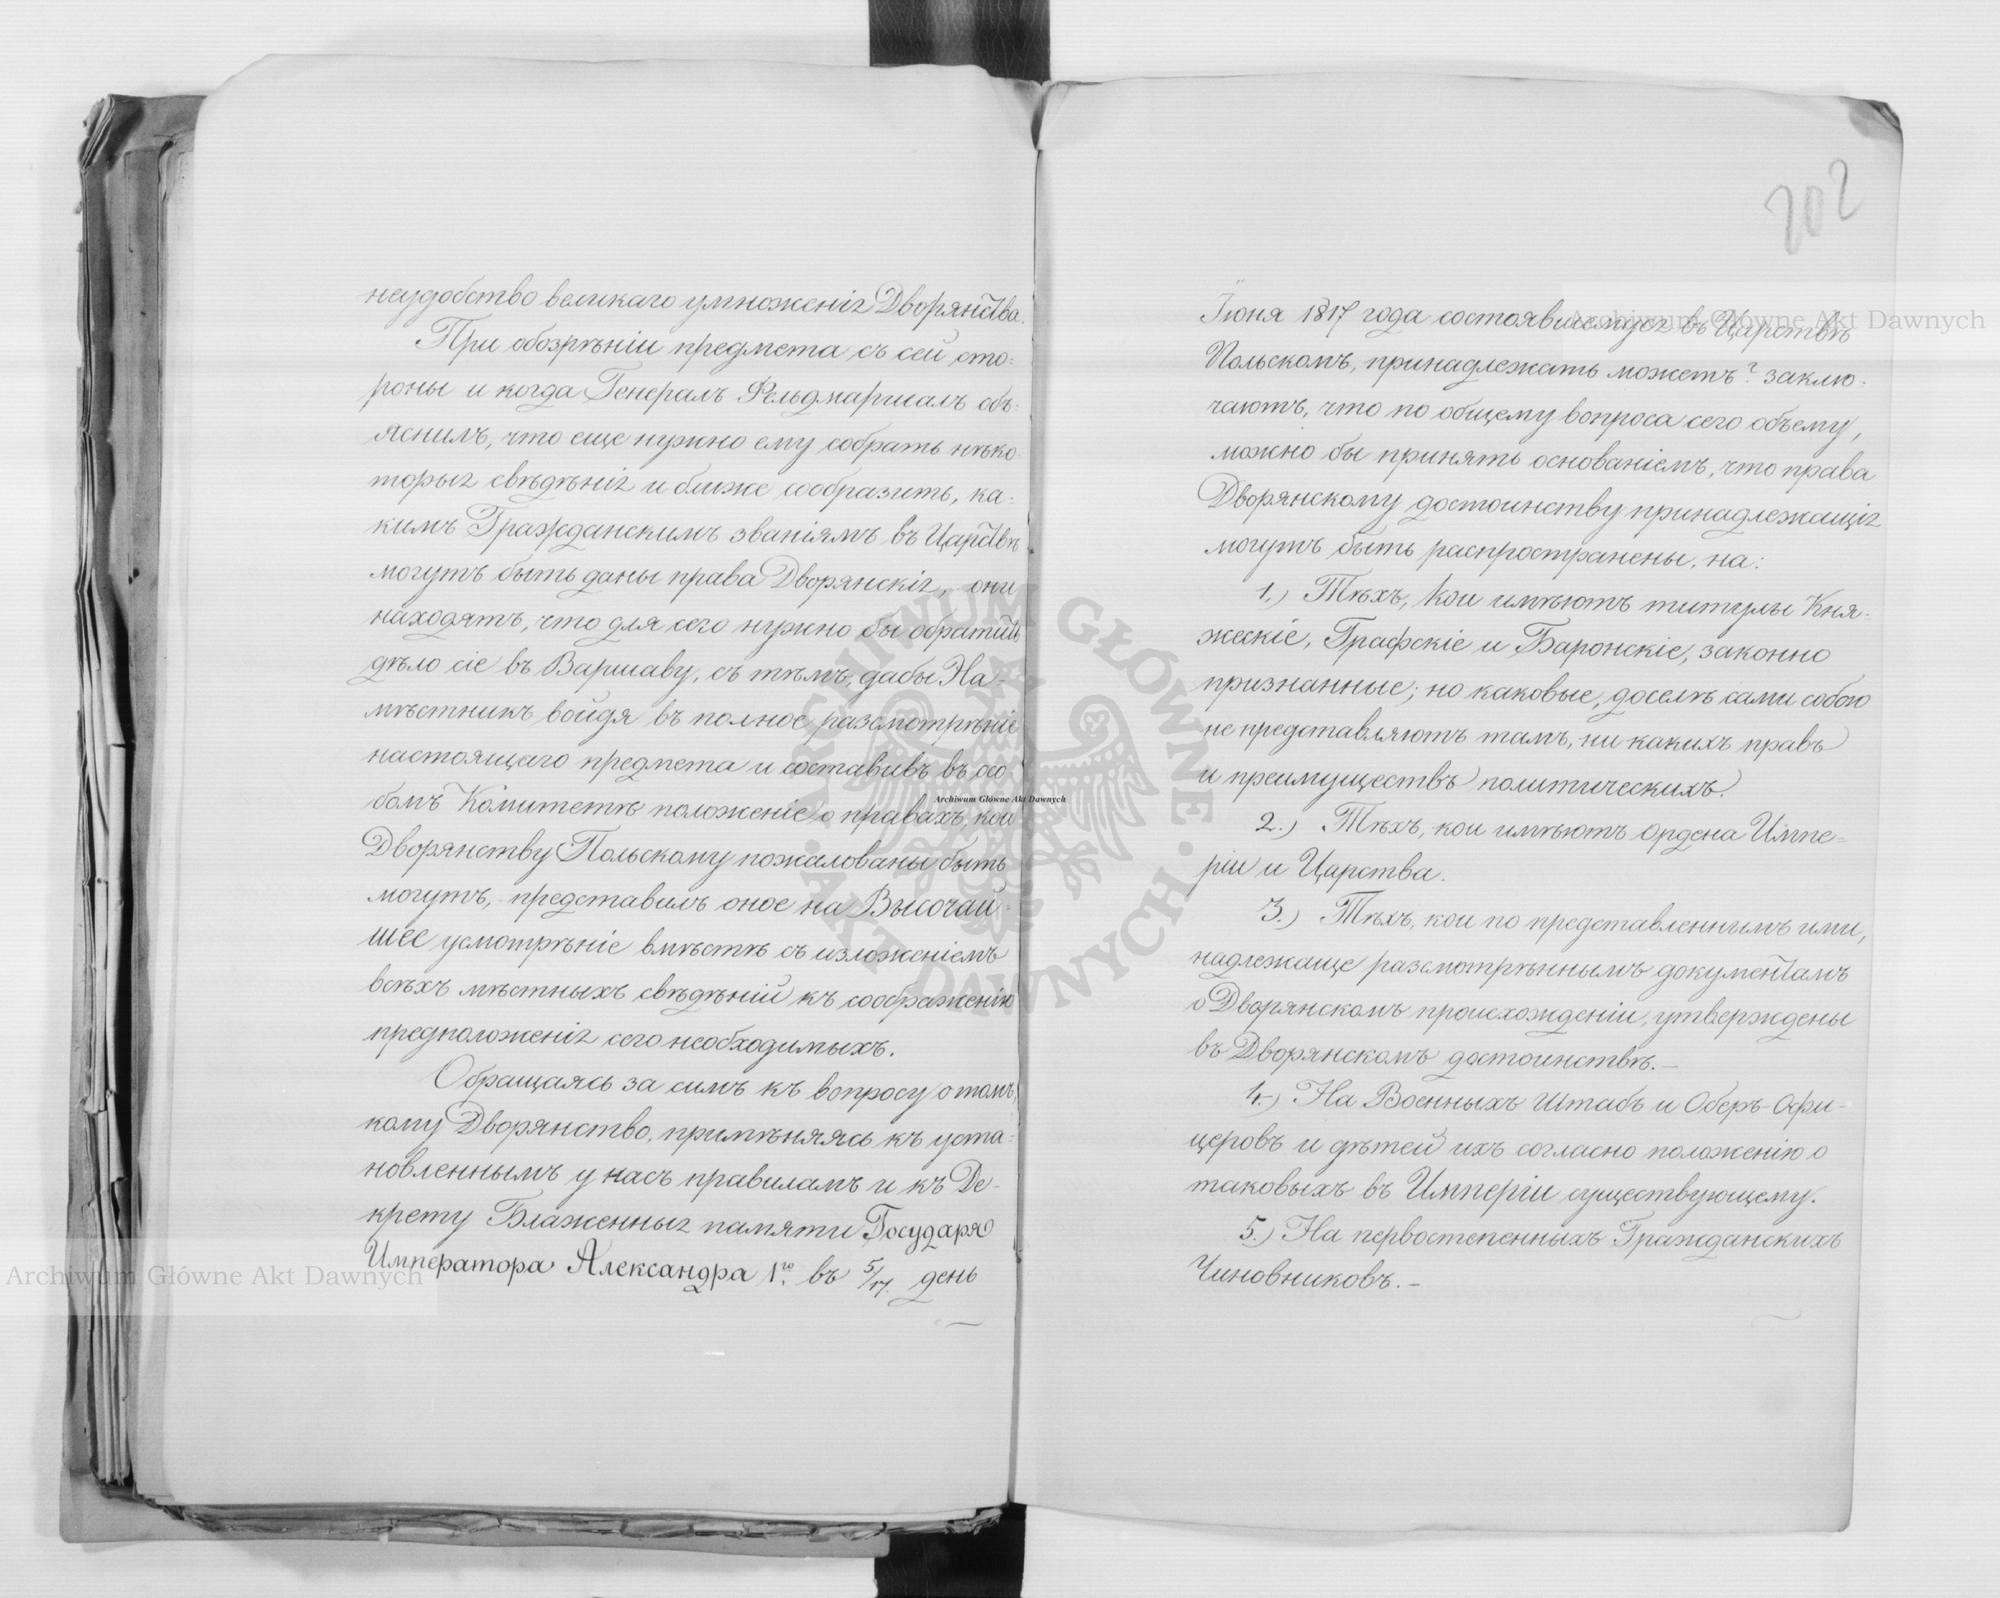 неудобство великаго умноженія Дворянства.
При обозрѣніи предмета съ сей сто-
роны и когда Генералъ Фельдмаршалъ объ-
яснилъ, что еще нужно ему собрать нѣко-
торыя свѣдѣнія и ближе сообразить, ка-
кимъ Гражданскимъ званіямъ въ Царствѣ
могутъ быть даны права Дворянскія, они
находятъ, что для сего нужно бы обратить
дѣло сіе въ Варшаву, съ тѣмъ, дабы На-
мѣстникъ войдя въ полное разсмотрѣніе
настоящаго предмета и составивъ въ осо-
бомъ Комитетѣ положеніе о правахъ, кои
Дворянству Польскому пожалованы быть
могутъ, представилъ оное на Высочай-
шее усмотрѣніе вмѣстѣ съ изложеніемъ
всѣхъ мѣстныхъ свѣдѣній къ соображенію
предположенія сего необходимыхъ.
Обращаясь за симъ къ вопросу о томъ,
кому Дворянство, примѣняясь къ уста-
новленнымъ у насъ правиламъ и къ Де-
крету Блаженныя памяти Государя
Императора Александра 1го въ 5/17. день
202
Іюня 1817 года состоявшемуся въ Царствѣ
Польскомъ, принадлежать можетъ? заклю-
чаютъ, что по общему вопроса сего объему,
можно бы принять основаніемъ, что права
Дворянскому достоинству принадлежащія
могутъ быть распространены на:
1.) Тѣхъ, кои имѣютъ титулы Кня-
жескіе, Графскіе и Баронскіе, законно
признанные; но каковые, доселѣ сами собою
не представляютъ тамъ, ни какихъ правъ
и преимуществъ политическихъ.
2.) Тѣхъ, кои имѣютъ ордена Импе-
ріи и Царства.
3.) Тѣхъ, кои по представленнымъ ими,
надлежаще разсмотрѣннымъ документамъ
о Дворянскомъ происхожденіи, утверждены
въ Дворянскомъ достоинствѣ.-
4.) На Военныхъ Штабъ и Оберъ-Офи-
церовъ и дѣтей ихъ согласно положенію о
таковыхъ въ Имперіи существующему.
5.) На первостепенныхъ Гражданскихъ
Чиновниковъ.-
Archiwum Główne Akt Dawnych
Archiwum Główne Akt Dawnych
Archiwum Główne Akt Dawnych
ARCHIWUM GŁÓWNE · AKT DAWNYCH ·